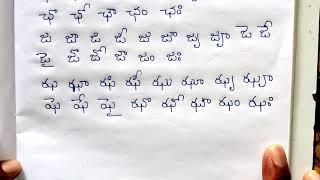 ఛొ ఛో ఛౌ ఛం ఛః
జ జా జి జీ జు జూ జృ జౄ జె జే
జై జొ జో జౌ జం జః
ఝ ఝా ఝి ఝీ ఝు ఝూ ఝృ ఝౄ
ఝె ఝే ఝై ఝొ ఝో ఝౌ ఝం ఝః